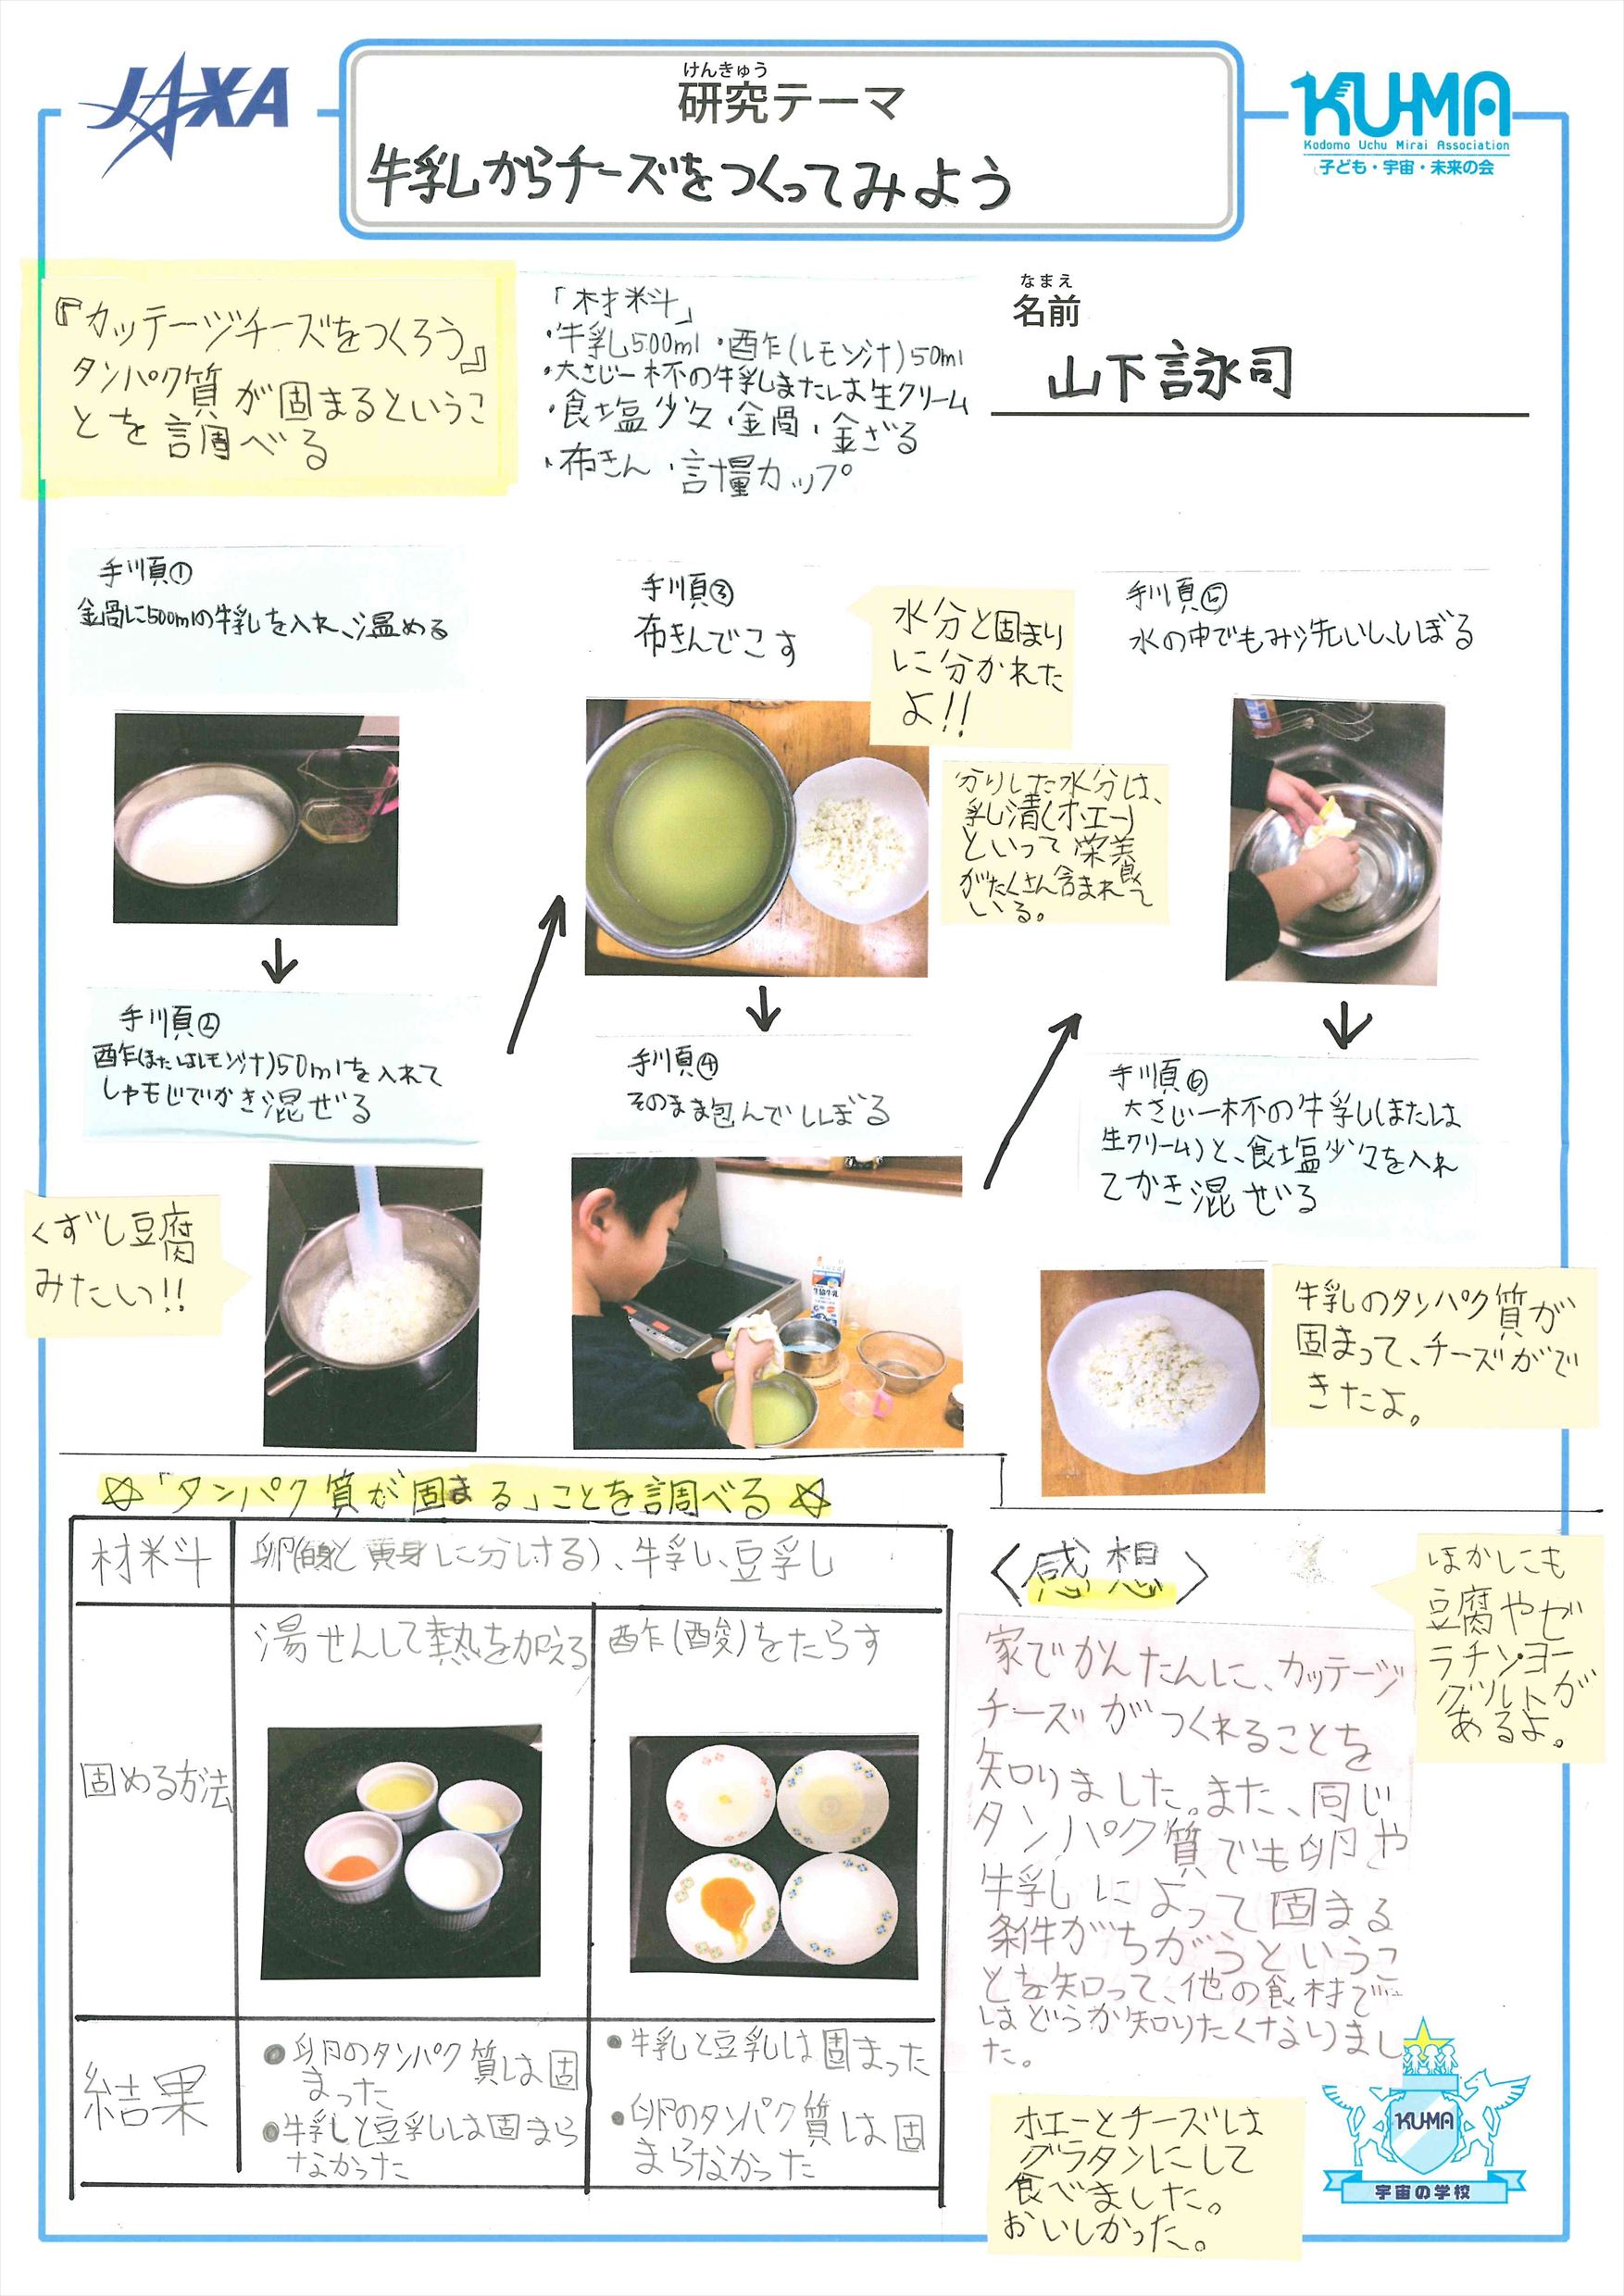 JAXA
けんきゅう
研究テーマ
牛乳からチーズをつくってみよう
KUMA
Kodomo Uchu Mirai Association
子ども・宇宙・未来の会
『カッテージチーズをつくろう』
タンパク質が固まるというこ
とを調べる
「材料」
・牛乳500ml ・酢(レモン汁)50ml
・大さじ一杯の牛乳または生クリーム
・食塩少々・金鍋・金ざる
・布きん ・計量カップ
なまえ
名前
山下詠司
手順①
金鍋に500mlの牛乳を入れ、温める
手順②
酢(またはレモン汁)50mlを入れて
しゃもじでかき混ぜる
くずし豆腐
みたい!!
手順③
布きんでこす
水分と固まり
に分かれた
よ!!
分りした水分は、
乳清(ホエー)
といって栄養
がたくさん含まれて
いる。
手順④
そのまま包んでしぼる
手順⑤
水の中でもみ洗いし、しぼる
手順⑥
大さじ一杯の牛乳(または
生クリーム)と、食塩少々を入れ
てかき混ぜる
牛乳のタンパク質が
固まって、チーズがで
きたよ。
☆「タンパク質が固まる」ことを調べる☆
材料
卵(白身と黄身に分ける)、牛乳、豆乳
固める方法
湯せんして熱を加える
酢(酸)をたらす
結果
●卵のタンパク質は固
まった
●牛乳と豆乳は固まら
なかった
●牛乳と豆乳は固まった
●卵のタンパク質は固
まらなかった
〈感想〉
家でかんたんに、カッテージ
チーズがつくれることを
知りました。また、同じ
タンパク質でも卵や
牛乳によって固まる
条件がちがうというこ
とを知って、他の食材で
はどうか知りたくなりまし
た。
ほかにも
豆腐やゼ
ラチン・ヨー
グルトが
あるよ。
ホエーとチーズは
グラタンにして
食べました。
おいしかった。
KUMA
宇宙の学校